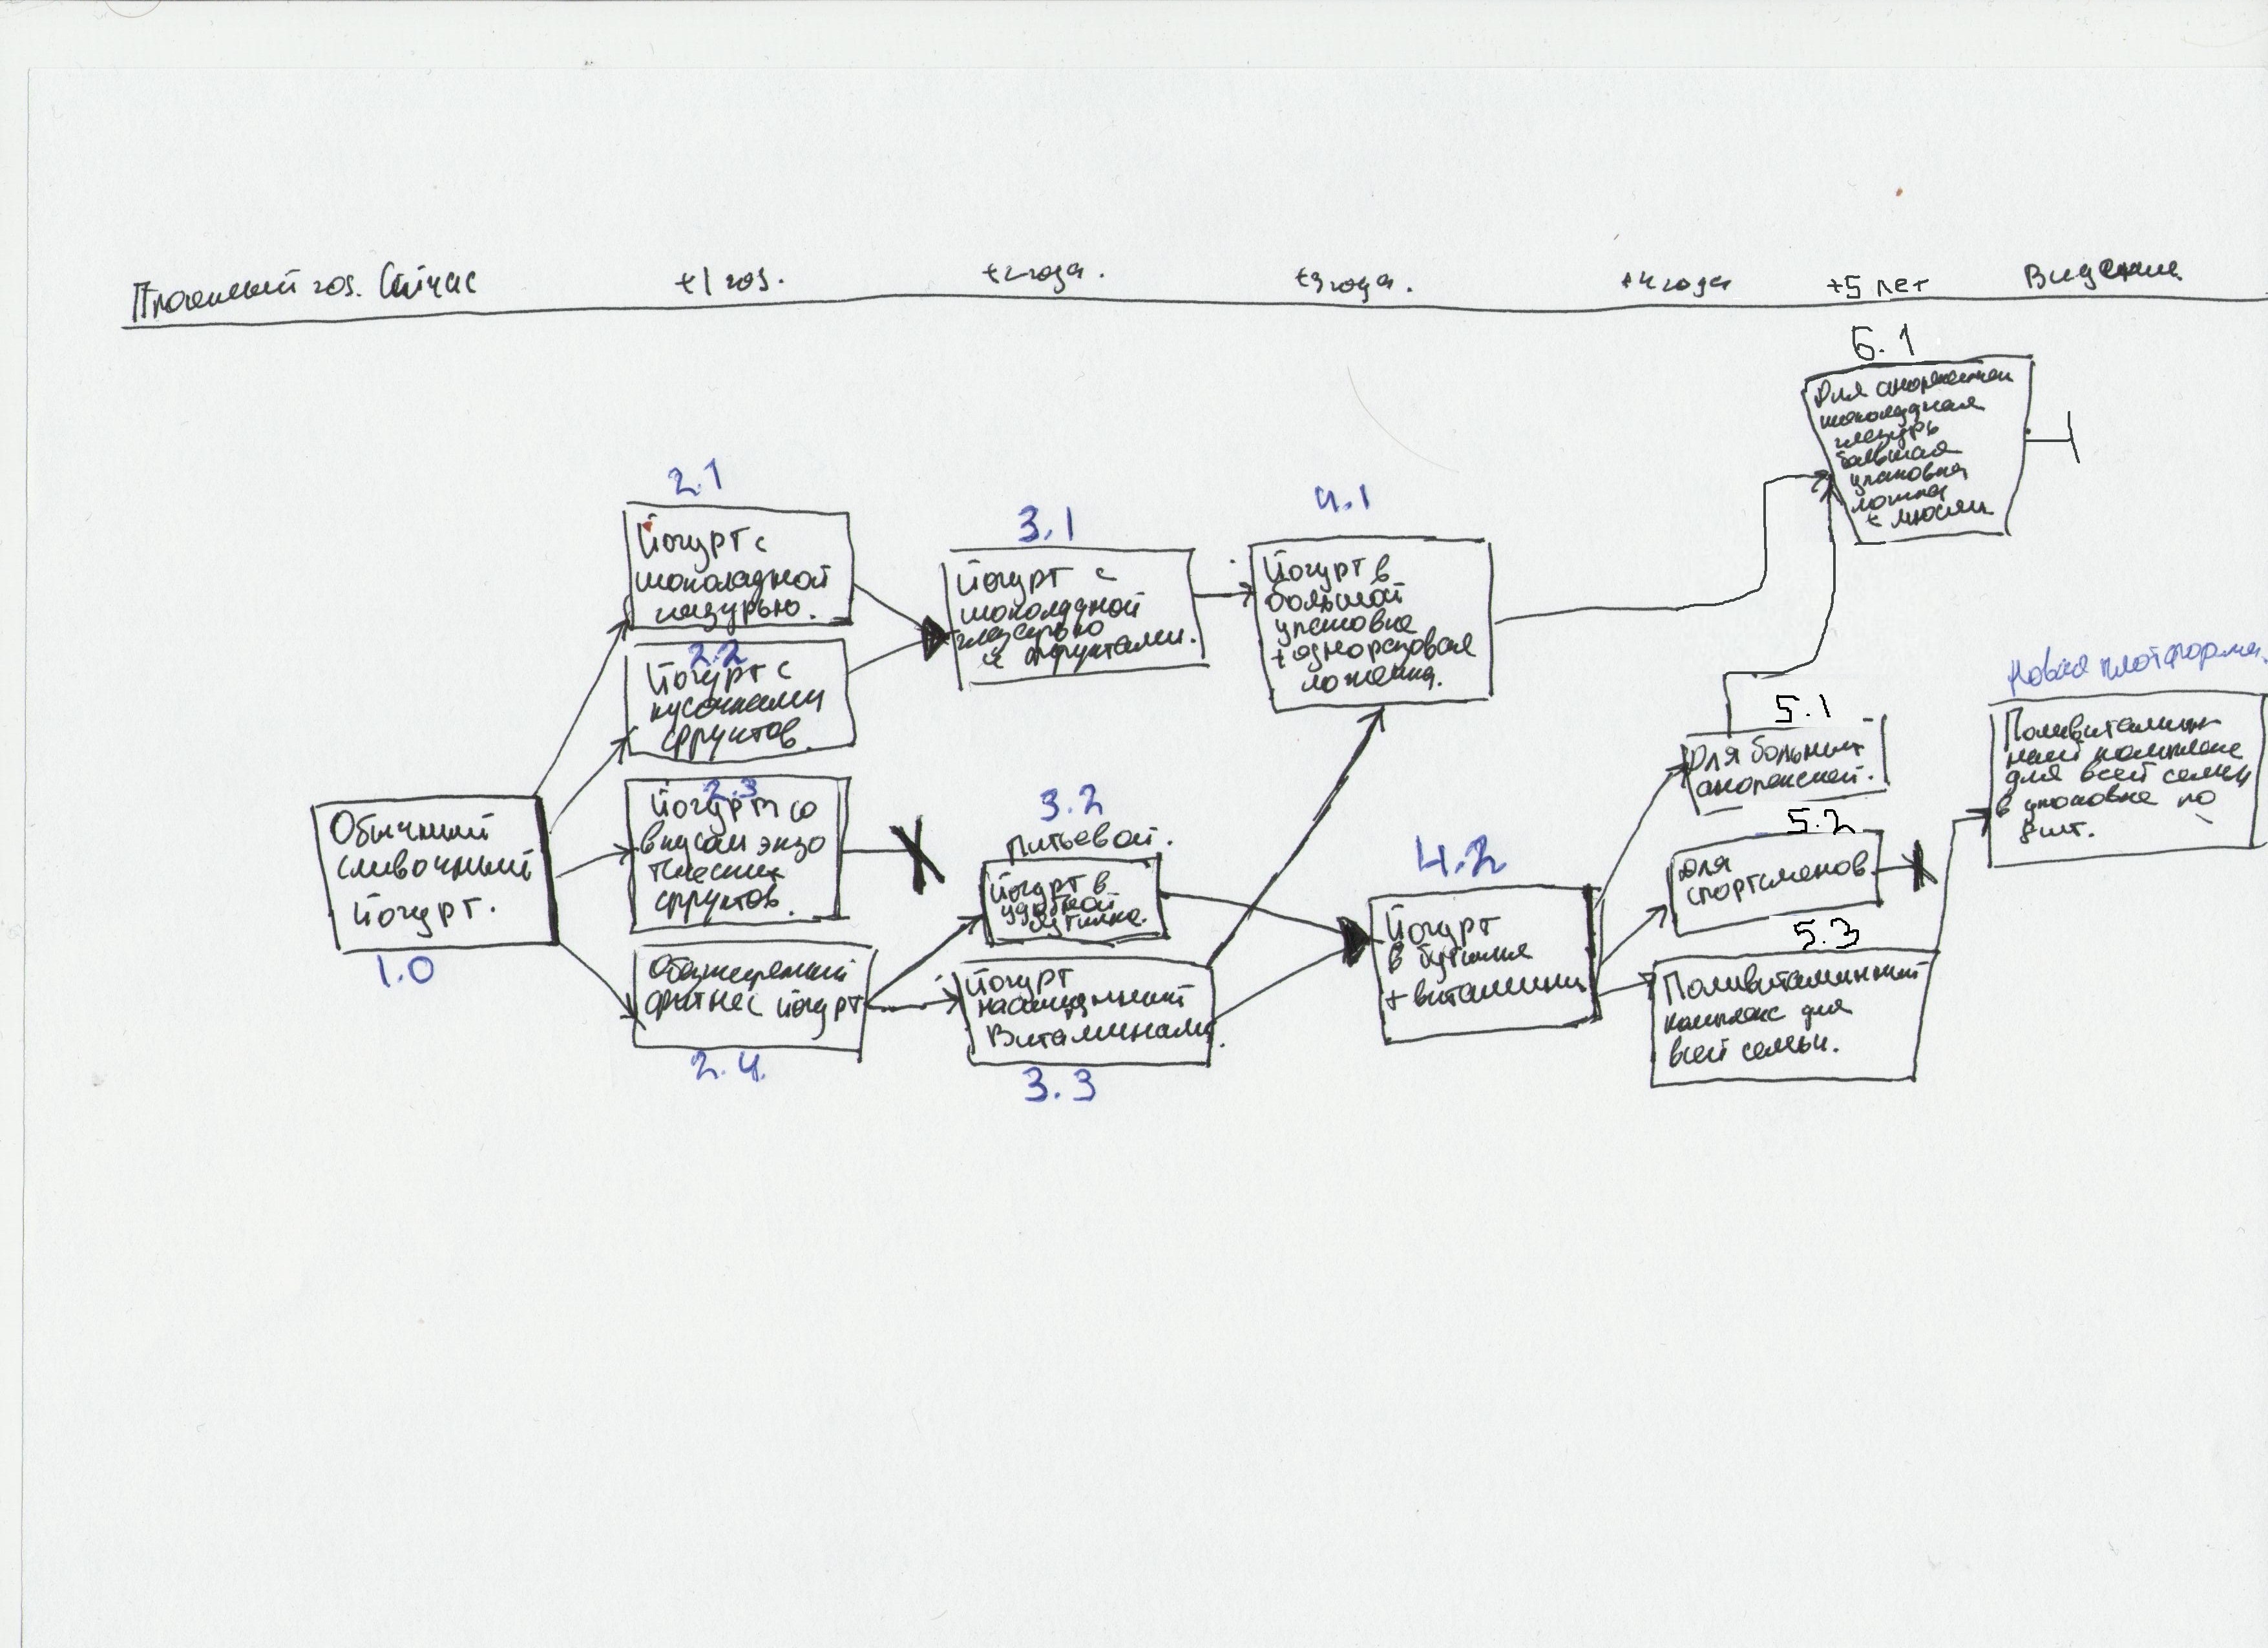 Прошлый год. Сейчас
+1 год.
+2 года.
+3 года.
+4 года
+5 лет
Видение
6.1
Для анорексичек
шоколадная
глазурь
большая
упаковка
ложка
+ мюсли
2.1
Йогурт с
шоколадной
глазурью.
3.1
Йогурт с
шоколадной
глазурью
и фруктами.
4.1
Йогурт в
большой
упаковке
+ одноразовая
ложечка.
2.2
Йогурт с
кусочками
фруктов.
2.3
Йогурт со
вкусом экзо
тических
фруктов.
1.0
Обычный
сливочный
йогурт.
Обезжиренный
фитнес йогурт
2.4.
3.2
Питьевой.
Йогурт в
удобной
бутылке.
Йогурт
насыщенный
Витаминами.
3.3
4.2
Йогурт
в бутылке
+ витамины
5.1
Для больных
анорексией.
5.2
Для
спортсменов
5.3
Поливитаминный
комплекс для
всей семьи.
Новая платформа.
Поливитамин
ный комплекс
для всей семьи
в упаковке по
шт.